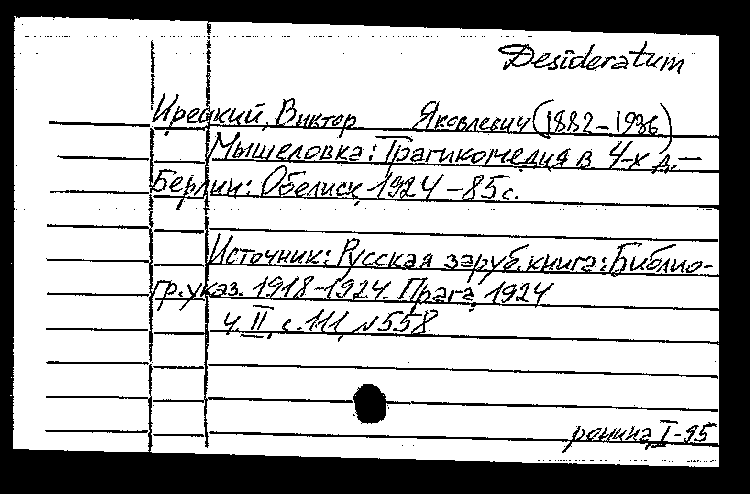 Desideratum
Ирецкий, Виктор Яковлевич (1882-1936)
Мышеловка: Трагикомедия в 4-х д.—
Берлин: Обелиск, 1924 -85с.
Источник: Русская заруб. книга: Библио-
гр. указ. 1918-1924. Прага, 1924
ч. II, с. 111, №558
I-95